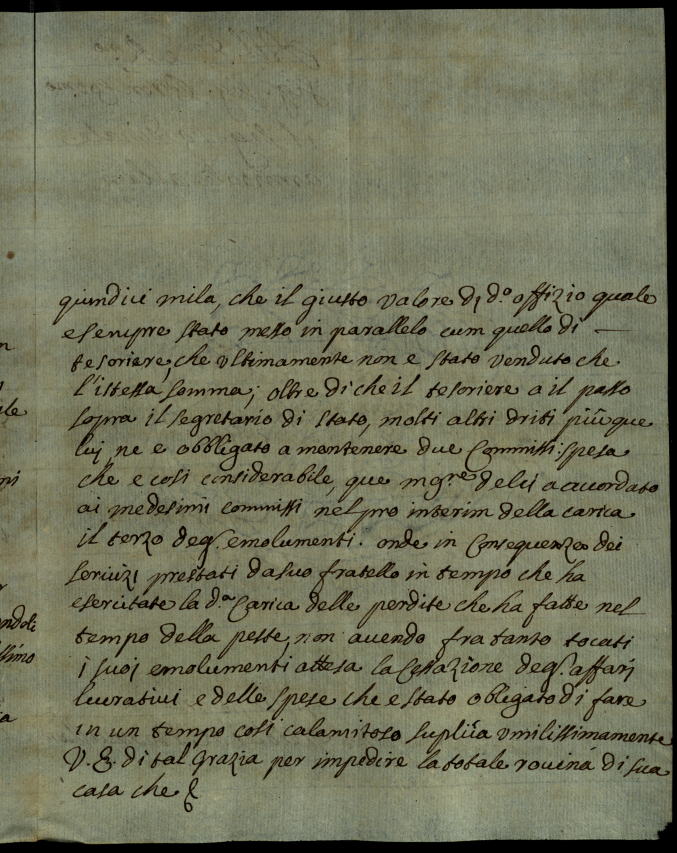 quindici mila, che il giusto valore di d.º offizio quale
e sempre stato messo in parallelo cum quello di —
tesoriere, che ultimamente non e stato venduto che
l'istessa somma; oltre di che il tesoriere a il passo
sopra il segretario di stato, molti altri driti più que
lui, ne e obbligato a mantenere due Commissi: spesa
che e cosi considerabile, que mgr.e delci a accordato
ai medesimi commissi nel pro interim della carica
il terzo deg. emolumenti. onde in Consequenza dei
servizi prestati da suo fratello in tempo che ha
esercitate la d.a Carica delle perdite che ha fatte nel
tempo della peste, non avendo fra tanto tocati
i suoi emolumenti attesa la Cessazione deg. affari
lucrativi e delle spese che e stato obligato di fare
in un tempo cosi calamitoso suplica umilissimamente
V. E. di tal grazia per impedire la totale rovina di sua
casa che
ndoli
ssimo